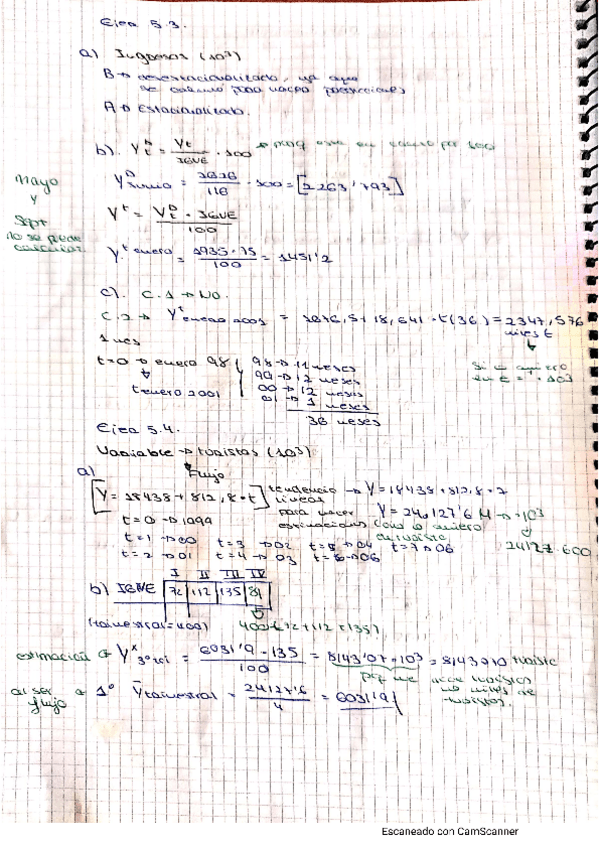 Ejea 5.3.
a) Ingresos (10³)
B → desestacionalizado, ya que
se calculo para hacer predicciones
A → Estacionalizado.
b). Y_t^D = Y_t / IGVE · 100 → porq esta en tanto por 100
Mayo y Sept no se puede calcular
Y^D junio = 2626 / 116 · 100 = [2263'793]
Y^t = Y_t^D · IGVE / 100
Y^t enero = 1935 · 75 / 100 = 1451'2
c). C.1 → NO.
C.2 → Y^t enero 2001 = 1676,5 + 18,641 · t(36) = 2347,576
miles €
1 mes
t=0 → enero 98
t enero 2001
98 → 11 meses
99 → 12 meses
00 → 12 meses
01 → 1 meses
36 meses
Si quiero en € = · 10³
Ejea 5.4.
Variable → turistas (10³)
Flujo
a)
[Y = 18438 + 812,8 · t] tendencia lineal → Y = 18438 + 812,8 · 7
para hacer estimaciones Y = 24.127'6 M → · 10³
como lo quiero en turista 24127.600
t = 0 → 1999
t = 1 → 00 t = 3 → 02 t = 5 → 04 t = 7 → 06
t = 2 → 01 t = 4 → 03 t = 6 → 06
I II III IV
b) IGVE 72 112 135 81
(trimestral = 400) 400 - (72 + 112 + 135)
estimación → Y^x 3º tri = 6031'9 · 135 / 100 = 8143'07 · 10³ = 8143010 turista
pq me pide turistas no miles de turistas.
al ser flujo → 1º Y trimestral = 24127'6 / 4 = 6031'9
Escaneado con CamScanner